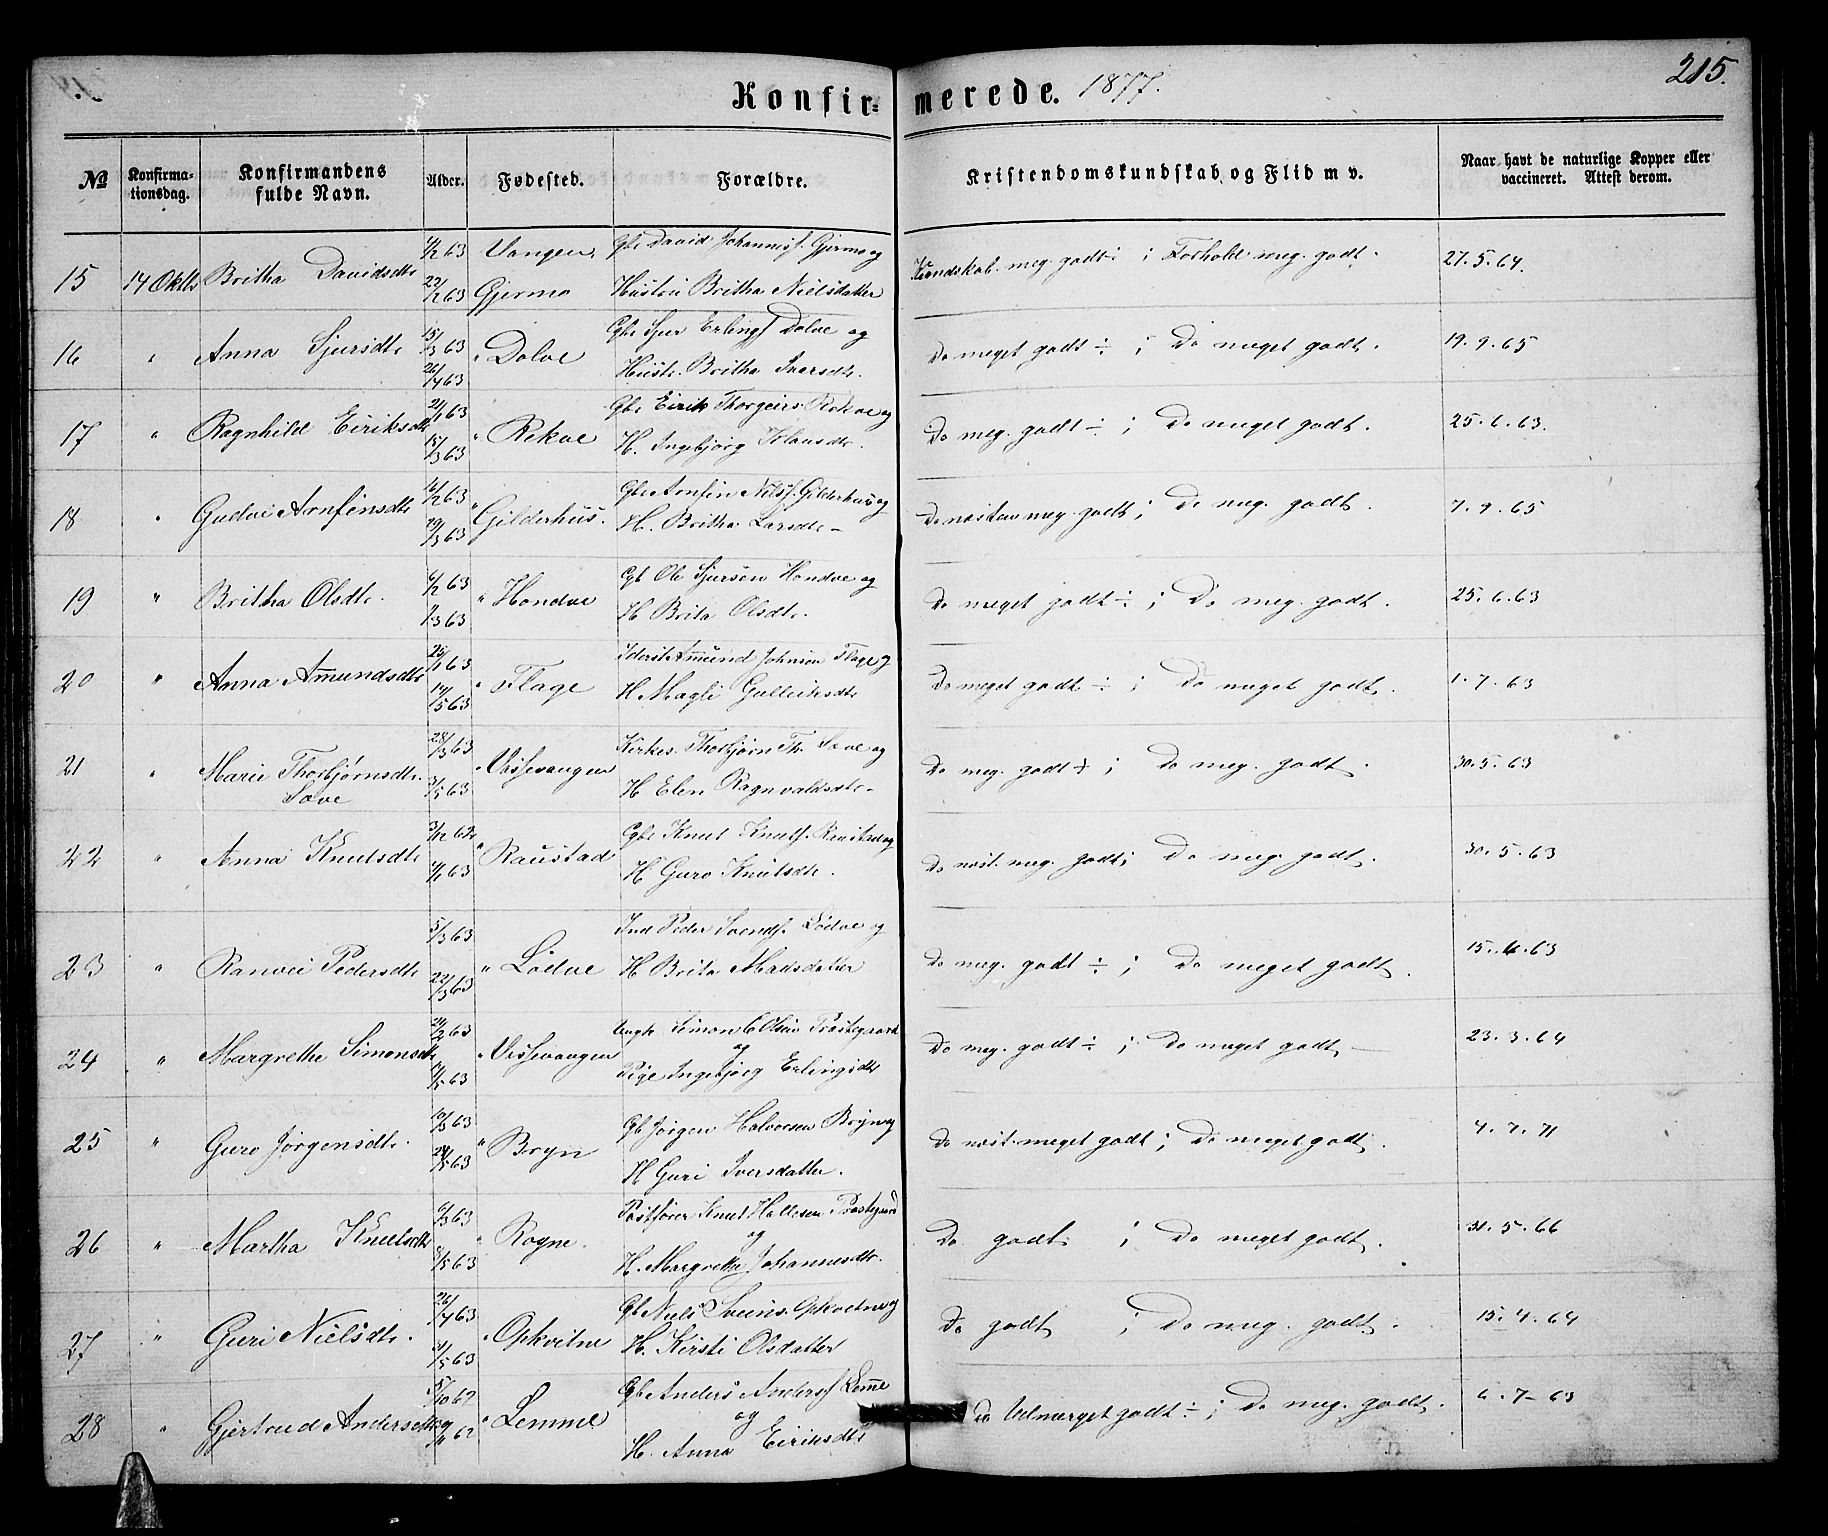 Konfir-merede. 1877. 215.
№ Konfirma-tionsdag. Konfirmandens fulde Navn. Alder. Fødested. Forældre. Kristendomskundskab og Flid m v. Naar havt de naturlige Kopper eller vaccineret. Attest derom.
4/2 63 Vangen, Gbr David Johannesf. Gjermo og
15 14 Oktb Britha Davidsdtr 22/2 63 Gjermo Hustru Britha Nielsdatter Kundskab. meg. godt ÷ ; Forhold meg. godt. 27. 5. 64.
15/3 63 Gbr Sjur Erlingf Dolve og
16 " Anna Sjursdtr 26/4 63 " Dolve Hustr. Britha Iversdtr. Do meget godt ÷ ; Do meget godt. 19. 9. 65
21/1 63 Gbr Eirik Thorgeirs. Rekve og
17 " Ragnhild Eiriksdtr 15/3 63 " Rekve H. Ingebjørg Klausdtr. Do meg. godt ÷ ; Do meget godt. 25. 6. 63.
16/2 63 Gbr Arnfin Nilsf. Gilderhus og
18 " Gudve Arnfinsdtr 29/3 63 " Gilderhus. H. Britha Larsdtr - Do næsten meg. godt ; Do meg. godt. 7. 9. 65
6/2 63 Gb Ole Sjursen Hondve og
19 " Britha Olsdtr. 1/3 63 " Hondve H Brita Olsdtr. Do meget godt ÷ ; Do meg. godt. 25. 6. 63
28/1 63 Iderst Amund Johnsen Flage og
20 " Anna Amundsdtr 14/5 63 " Flage H Magli Gulleiksdtr Do meget godt ÷ ; Do meget godt. 1. 7. 63
28/3 63 Kirkes. Thorbjørn Th. Sove og
21 " Marie Thorbjørnsdtr. 3/5 63 " Vossevangen H Elen Ragnvaldsdtr. Do meg. godt ÷ ; Do meg. godt. 30. 5. 63
Sove
3/12 62 Gbr Knut Knutf. Raustad og
22 " Anna Knutsdtr 4/1 63 " Raustad H Guro Knutsdtr. Do næst. meg. godt ; Do meg. godt. 30. 5. 63
5/3 63 Ind Peder Svendf. Lødve og
23 " Ranvei Pedersdtr 22/3 63 " Lødve H Brita Madsdatter Do meg. godt ÷ ; Do meget godt. 15. 6. 63
24/2 63 Ungk Simon Olsen Præstegaard
24 " Margrethe Simonsdtr 14/5 63 " Vossevangen og Do meg. godt ÷ ; Do meget godt 23. 3. 64
Pige Ingebjørg Erlingsdtr
10/3 63 Gb Jørgen Halvorsen Bryn og
25 " Guro Jørgensdtr. 24/5 63 " Bryn H Guri Iversdatter. Do næst. meget godt ; Do meget godt. 4. 7. 71
6/3 63 Postfører Knut Hallesen Præstegaard
26 " Martha Knutsdtr 8/5 63 " Rogne. og Do godt ; Do meget godt. 31. 5. 66
H. Margrethe Johannesdtr.
26/4 63 Gb Niels Sveins. Opkvitne og
27 " Guri Nielsdtr. 31/5 63 " Opkvitne H. Kirsti Olsdatter Do godt ; Do meg. godt. 15. 4. 64
5/10 62 Gb Anders Andersf Lemme
28 " Gjertrud Andersdtr 9/11 62 " Lemme og do Udmærget godt ÷ ; Do meg. godt. 6. 7 - 63
H. Anna Eiriksdtr